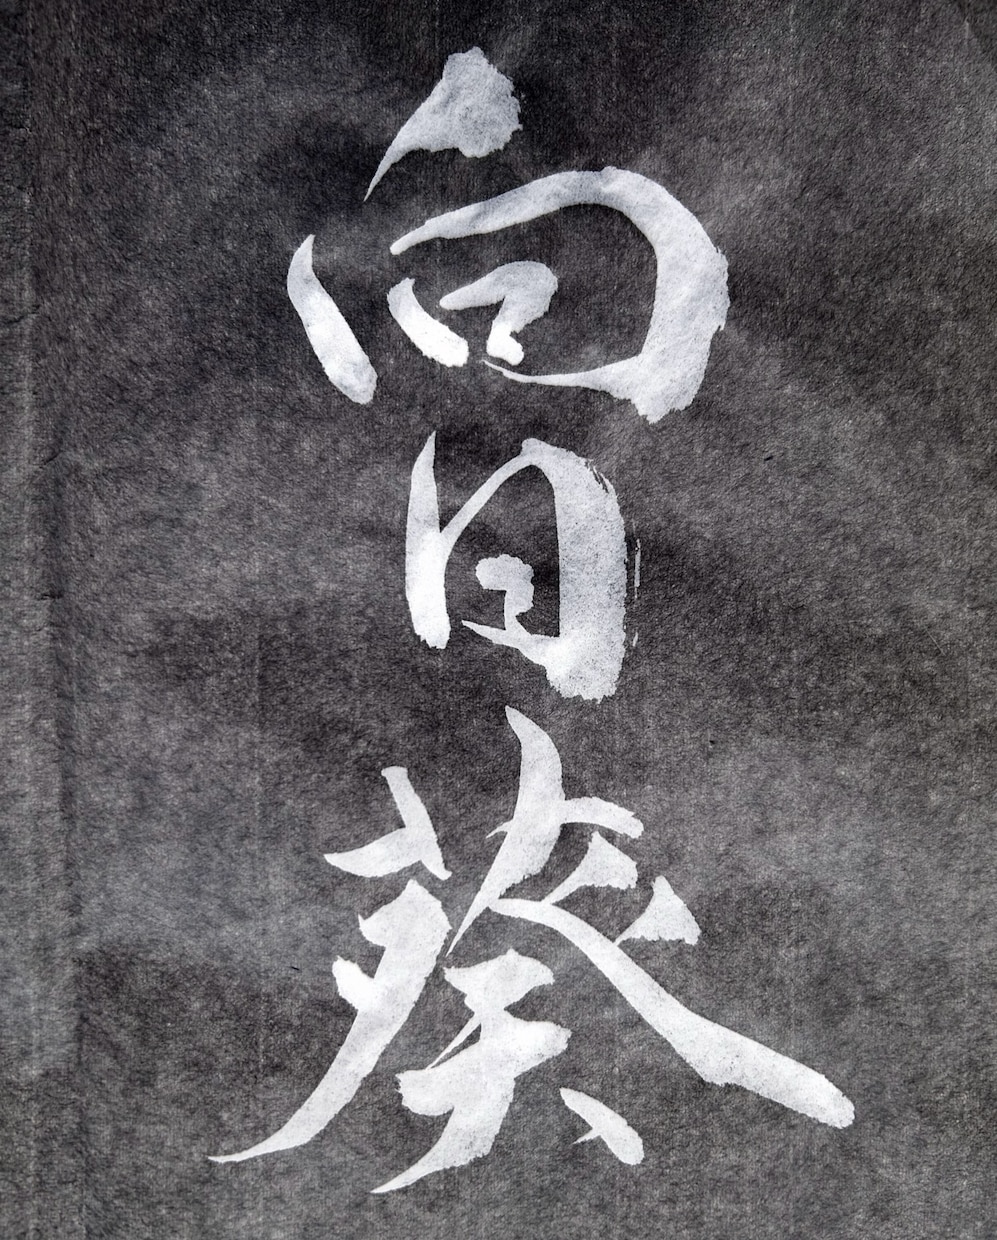 向日葵